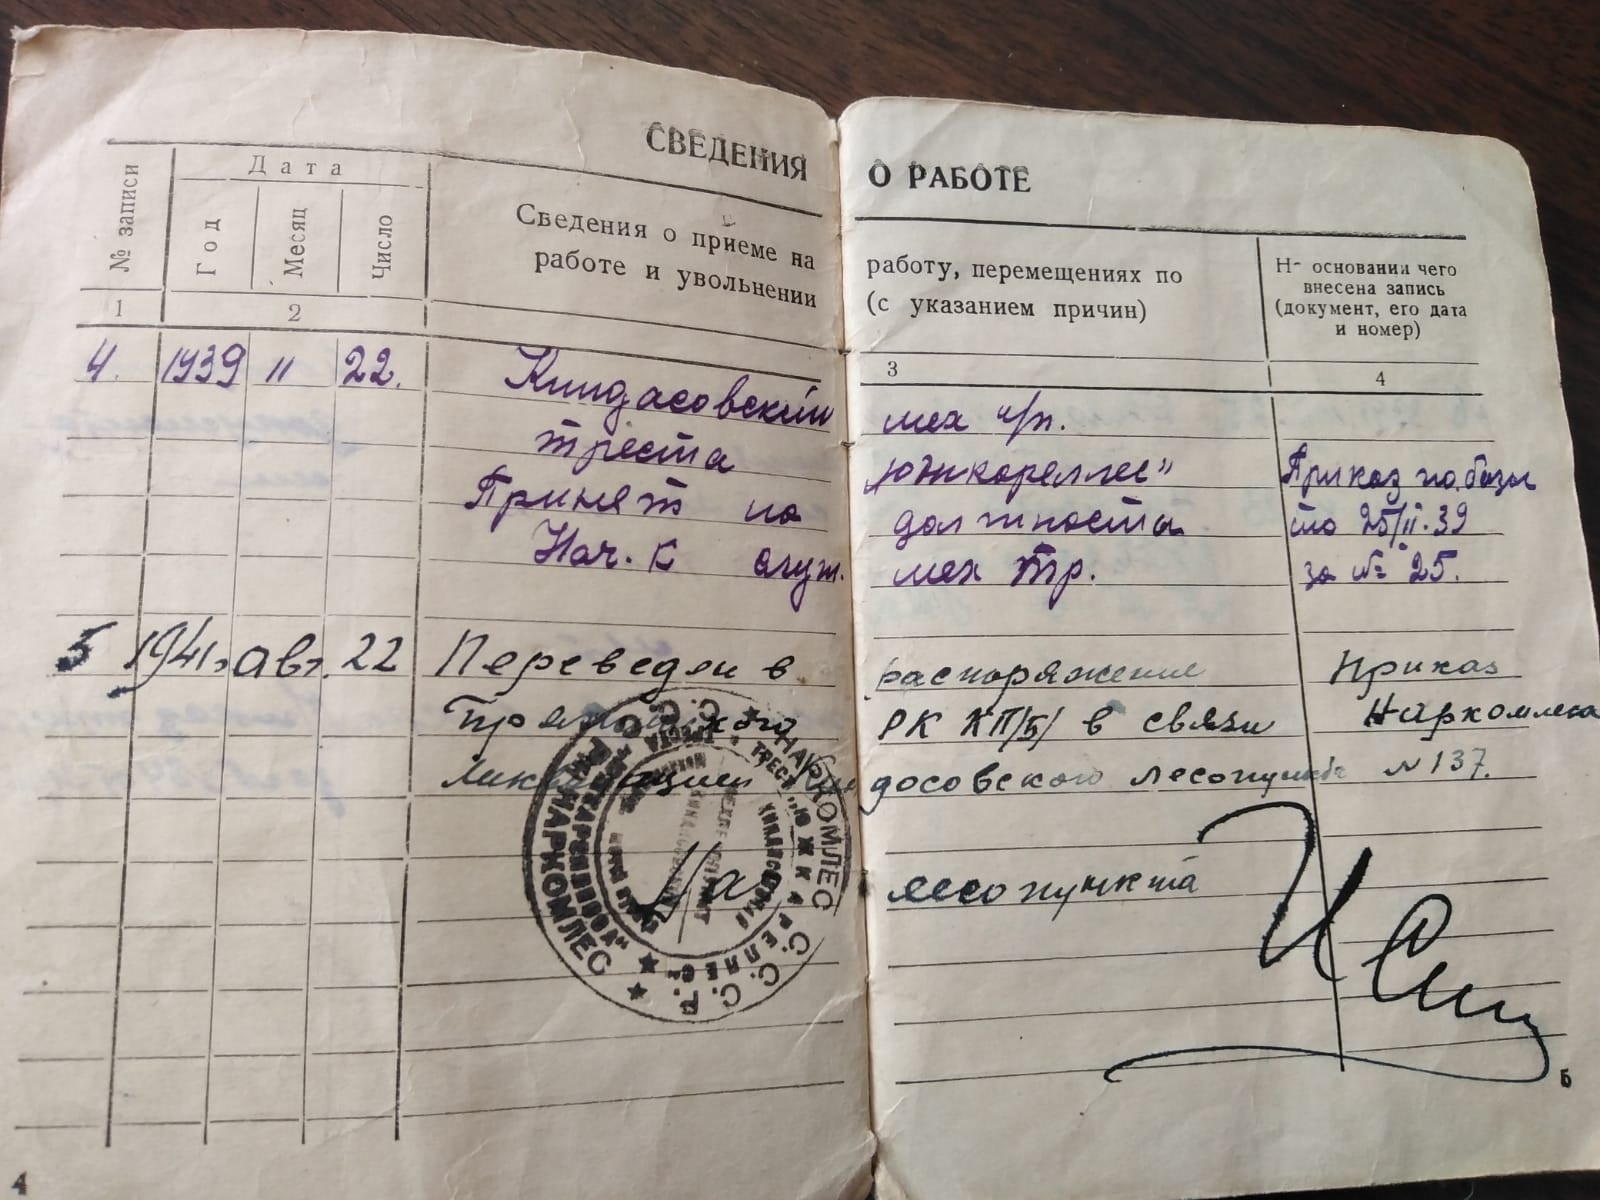 СВЕДЕНИЯ О РАБОТЕ
№ записи
Дата
Год
Месяц
Число
Сведения о приеме на работу, перемещениях по
работе и увольнении (с указанием причин)
Н- основании чего
внесена запись
(документ, его дата
и номер)
1 2 3 4
4. 1939 II 22. Киндасовский мех
треста „Южкареллес"
Принят на должность Приказ по базы
Нач. К мех тр. 25/II.39
за № 25.
5 1941г. авг. 22 Переведен в распоряжение Приказ
РК КП/б/ в связи Наркомлеса
досовского лесопункта N 137.
Нач лесопункта
НАРКОМЛЕС
ТРЕСТ „ЮЖКАРЕЛЛЕС"
4
5